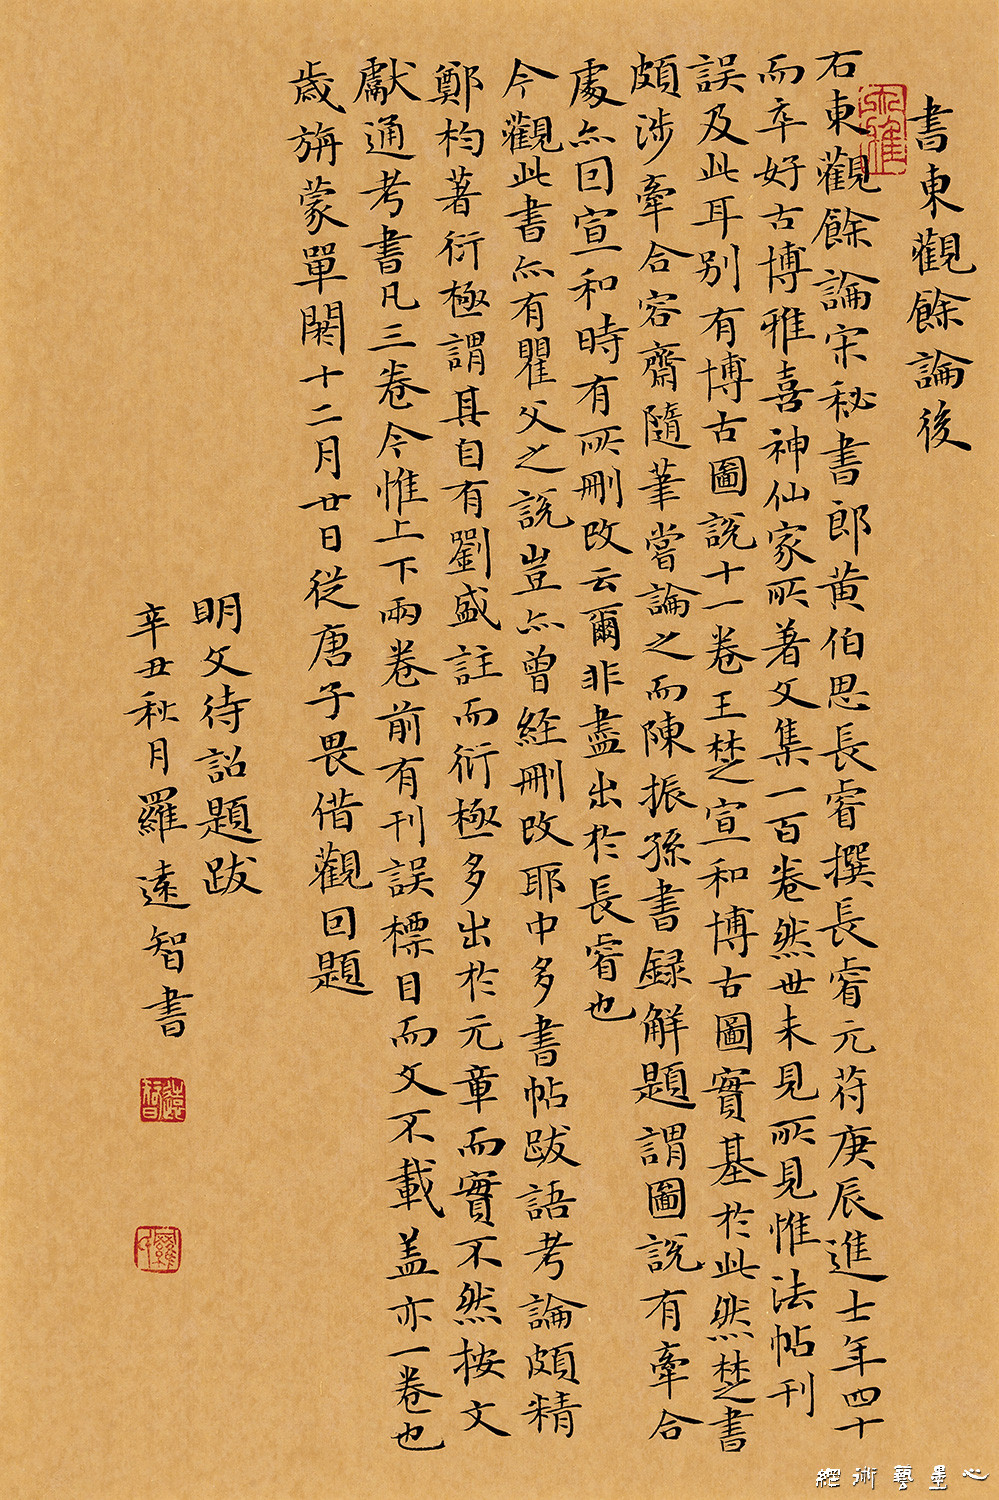 書東觀餘論後
右東觀餘論宋秘書郎黄伯思長睿撰長睿元苻庚辰進士年四十
而卒好古博雅喜神仙家所著文集一百卷然世未見所見惟法帖刊
誤及此耳别有博古圖説十一卷王楚宣和博古圖實基於此然楚書
頗涉牽合容齋隨筆嘗論之而陳振孫書録解題謂圖説有牽合
處亦回宣和時有所刪改云爾非盡出於長睿也
今觀此書亦有瞿父之説豈亦曾経刪改耶中多書帖跋語考論頗精
鄭枃著衍極謂其自有劉盛註而衍極多出於元章而實不然按文
獻通考書凡三卷今惟上下兩卷前有刊誤標目而文不載盖亦一卷也
歳旃蒙單閼十二月廿日従唐子畏借觀回題
明文待詔題跋
辛丑秋月羅遠智書
遠智
心墨藝術網